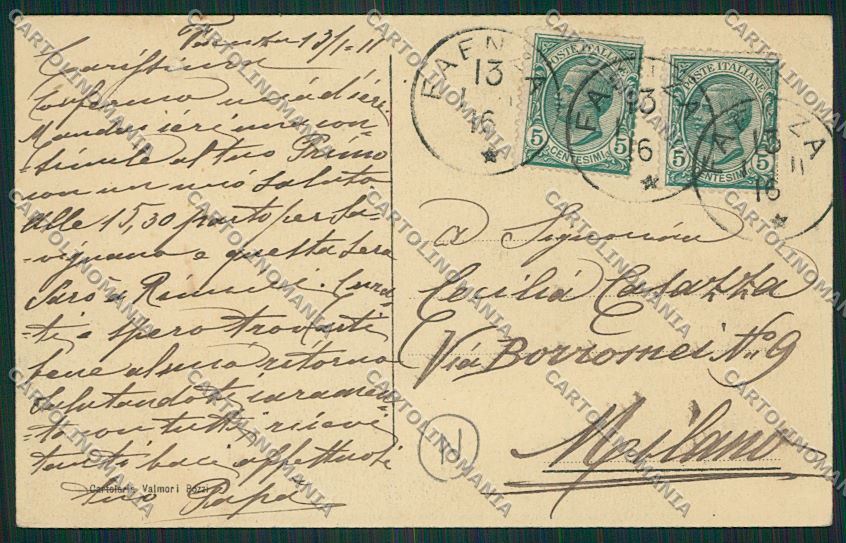 Faenza 13/1-11
Carissima
Confermo mia di ieri
Mandai ieri una con-
simile al tuo Primo
con un mio saluto
Alle 15,30 parto per Sa-
-vignano e questa sera
sarò a Rimini. Cura-
-ti e spero trovarti
bene al mio ritorno
Salutandoti caramen-
-te con tutti, ricevi
tanti baci affettuosi
tuo Papà
Cartoleria Valmori Bozzi
FAENZA
13
1 - 11
16
POSTE ITALIANE
5 5
CENTESIMI
FAENZA
13
16
POSTE ITALIANE
5 5
CENTESIMI
FAENZA
13
11
16
A Signorina
Cecilia Casazza
Via Borromei N. 9
Milano
N
CARTOLINOMANIA